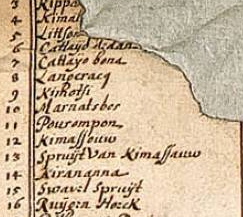 3 Rippo
4 Kimal
5 Littfoe
6 Cattayo adaan
7 Cattayo bona
8 Lanocracq
9 Kijhotsi
10 Marnatsbos
11 Pourompon
12 Kimassouw
13 Spruÿt Van Kimassauw
14 Kirananna
15 Swavel Spruÿt
16 Ruÿgen Hoeck